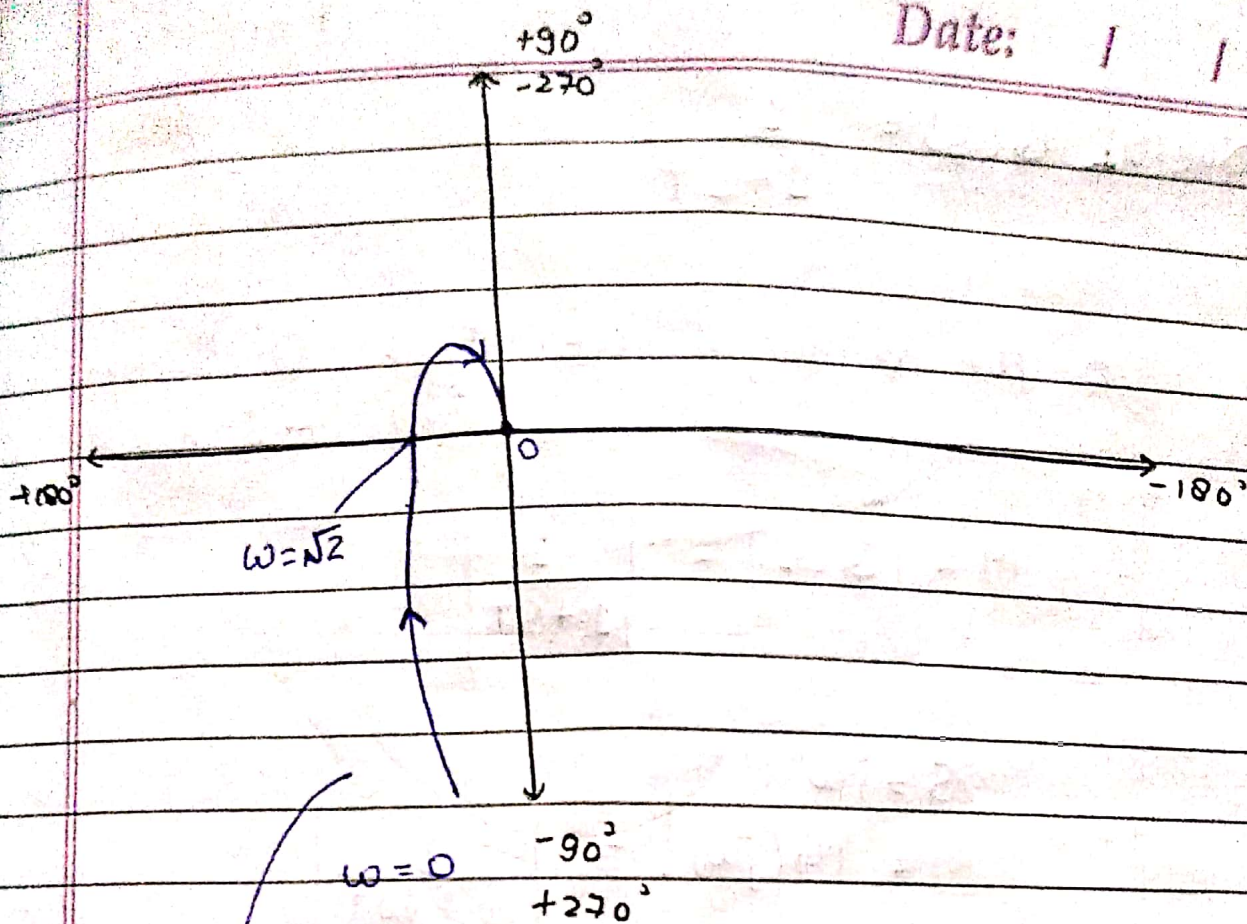 Date: / /
+90°
-270°
0
+180°
-180°
ω=√2
-90°
ω=0
+270°